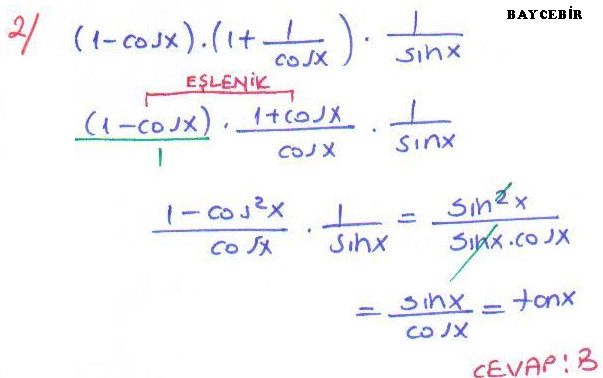 BAYCEBİR
2/ (1-cosx).(1+1/cosx).1/sinx
EŞLENİK
(1-cosx)/1 . 1+cosx/cosx . 1/sinx
1-cos²x/cosx . 1/sinx = sin²x/sinx.cosx
= sinx/cosx = tanx
CEVAP: B